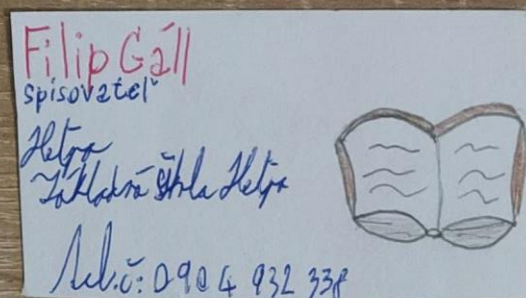 Filip Gáll
spisovateľ
Heľpa
Základná škola Heľpa
Tel.č: 0904 932 338